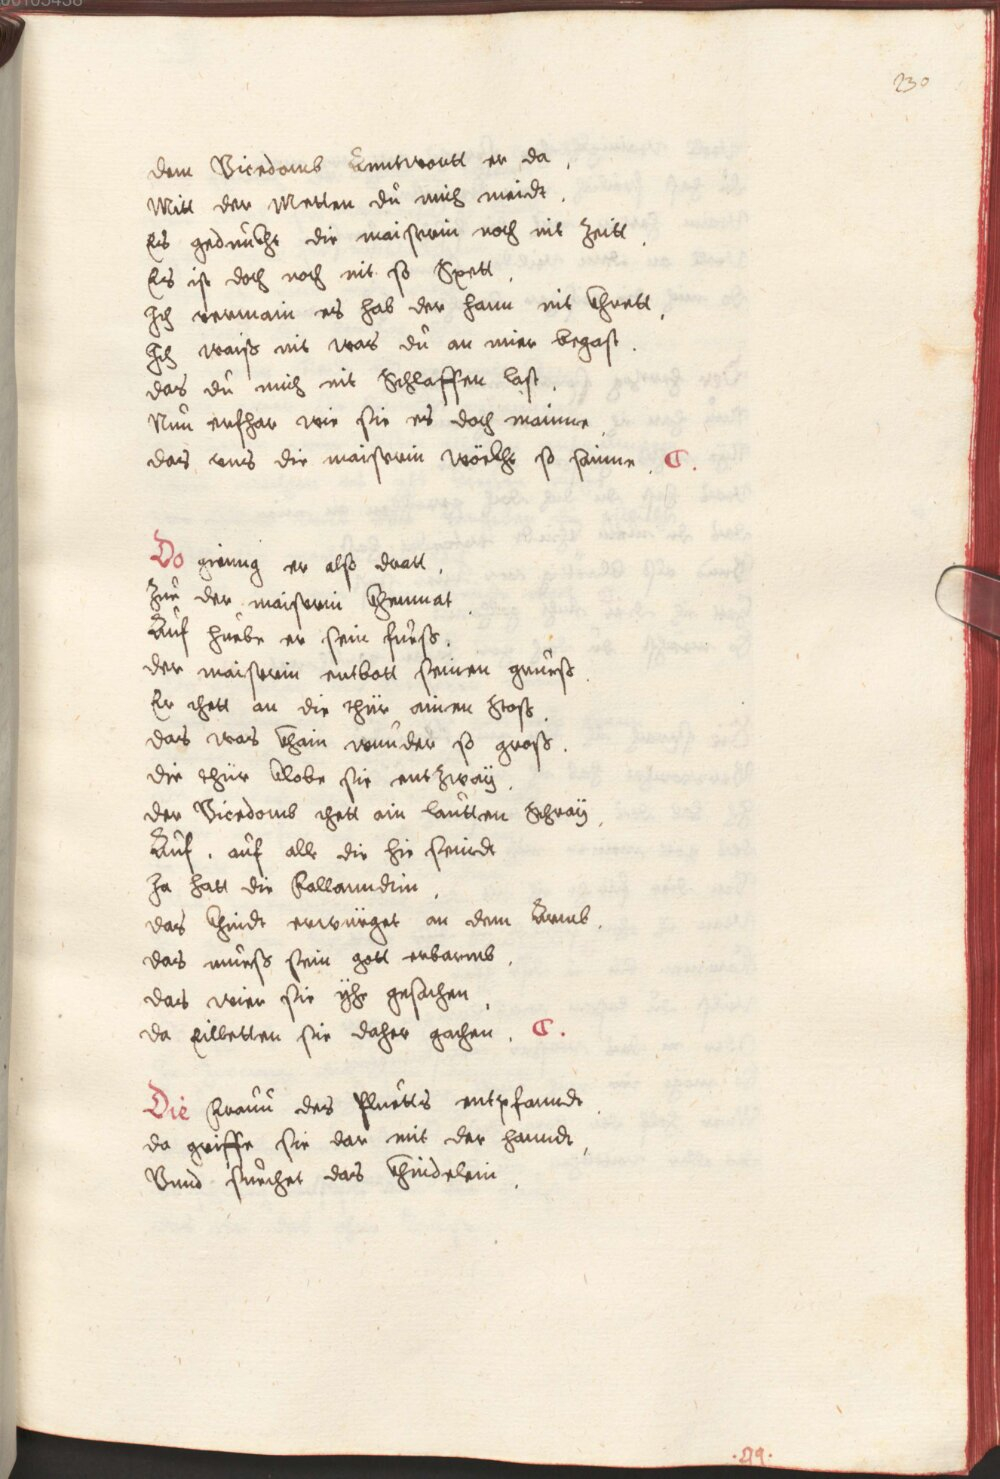 230
dem Vicedomb Anntwortt er da,
Mitt der Metten du mich meidt.
Es gedeucht die maisterin noch nit Zeitt.
Es ist doch noch nit so Spett.
Ich vermain es hab der hann nit khrett,
Ich waiß nit was du an mier begast.
das du mich nit Schlaffen last.
Nun erfhar wie sie es doch maine,
das vns die maisterin so saine. C.
Do gienng er alß dratt.
Zue der maisterin khemnat
Auf huebe er sein fueß.
der maisterin entbott seinen grueß.
Er thett an die thür ainen Stoß,
das was khain wunder so groß.
die thür klobe sie entzway.
der Vicedomb thett ain lautten Schray,
Auf. auf alle die hie seindt
Ja hatt die Vallanndtin,
das khindt erwürget an dem Armb.
das mueß sein gott erbarmb.
das wier sie yhe gesachen,
da Eilletten sie daher gachen. C.
Die Frauu des Pluetts entpfanndt.
da griffe sie dar mit der hanndt,
Vnnd suechet das khindelein.